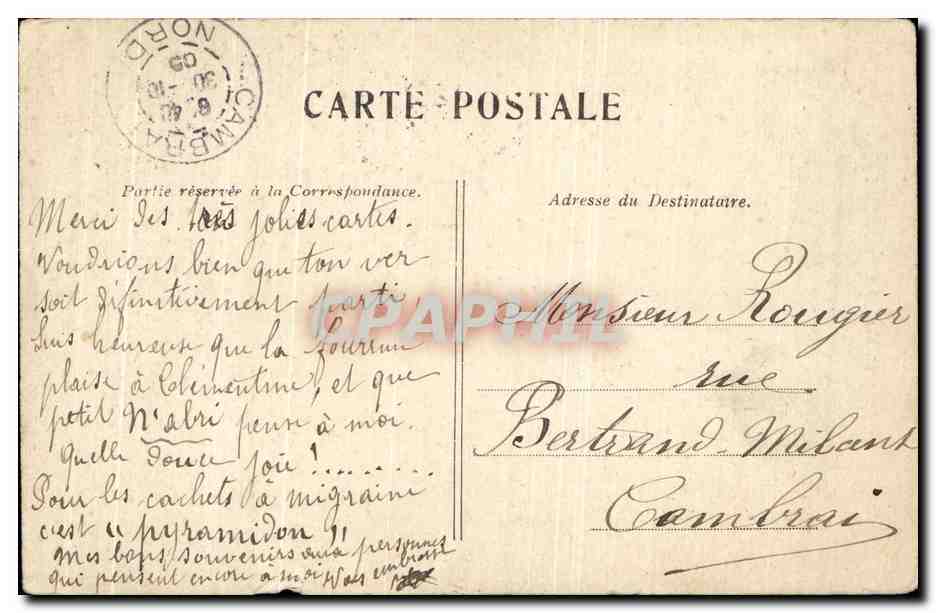 CAMBRAI
NORD
6 40
30 - 10
05
CARTE POSTALE
Partie réservée à la Correspondance.
Adresse du Destinataire.
Merci des très jolies cartes.
Voudrions bien que ton ver
soit définitivement parti,
Suis heureuse que la
plaise à Clémentine, et que
petit N'abri pense à moi.
Quelle douce joie !........
Pour les cachets à migraine
c'est " pyramidon "
Mes bons souvenirs aux personnes
qui pensent encore à moi Vous embrasse
Monsieur Rougier
rue
Bertrand-Milant
Cambrai
CPAPHIL